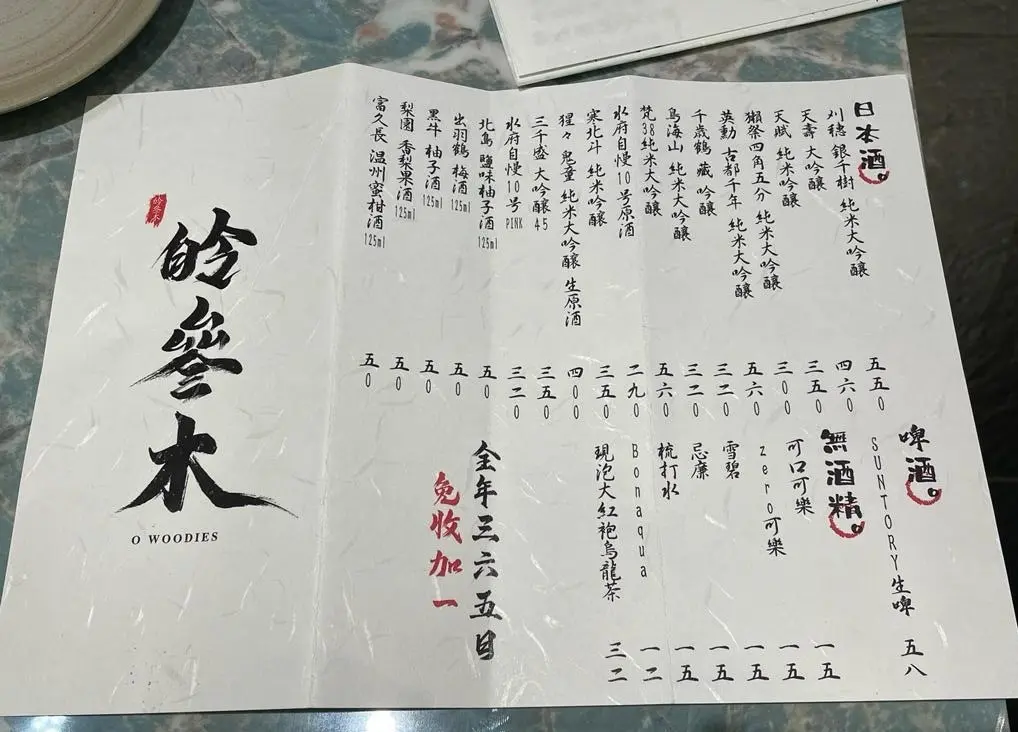 日本酒。
刈穗 銀千樹 純米大吟釀 五五0
天壽 大吟釀 四六0
天賦 純米吟釀 三五0
獺祭四角五分 純米大吟釀 三00
英勳 古都千年 純米大吟釀 五六0
千歲鶴 藏 吟釀 三二0
鳥海山 純米大吟釀 三二0
梵38純米大吟釀 五六0
水府自慢10号原酒 二九0
寒北斗 純米吟釀 三五0
猩々 鬼童 純米大吟釀 生原酒 四00
三千盛 大吟釀45 三五0
水府自慢10号 PINK 三二0
北島 鹽味柚子酒 125ml 五0
出羽鶴 梅酒 125ml 五0
黑牛 柚子酒 125ml 五0
梨園 香梨果酒 125ml 五0
富久長 温州蜜柑酒 125ml 五0
啤酒。
SUNTORY生啤 五八
無酒精。
可口可樂 一五
zero可樂 一五
雪碧 一五
忌廉 一五
梳打水 一五
Bonaqua 一二
現泡大紅袍烏龍茶 三二
全年三六五日
免收加一
皊參木
皊參木
O WOODIES